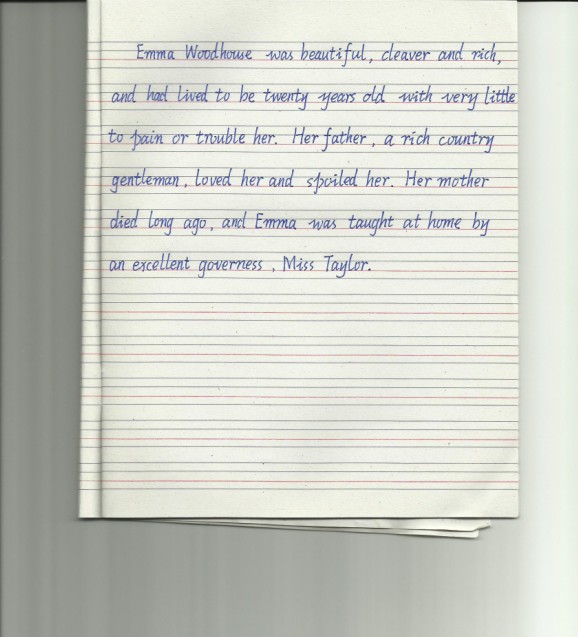 Emma Woodhouse was beautiful, cleaver and rich,
and had lived to be twenty years old with very little
to pain or trouble her. Her father, a rich country
gentleman, loved her and spoiled her. Her mother
died long ago, and Emma was taught at home by
an excellent governess, Miss Taylor.